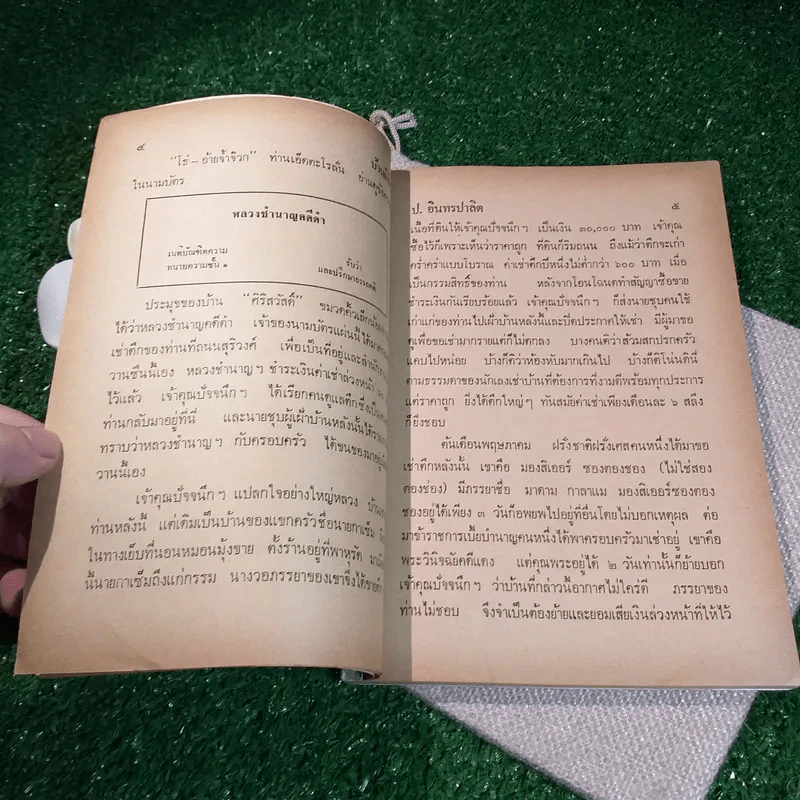 ๔
"โธ่ – อ้ายจ้าจ๊วก" ท่านเอ็ดตะโรลั่น
ในนามบัตร
หลวงชำนาญคดีดำ
เนติบัณฑิตความ
ทนายความชั้น ๑
รับว่า
และปรึกษาอรรถคดี
ประมุขของบ้าน "ศิริสวัสดิ์" ขมวดคิ้วเล็กน้อย
ได้ว่าหลวงชำนาญคดีดำ เจ้าของนามบัตรแผ่นนี้ได้มา
เช่าตึกของท่านที่ถนนสุริวงศ์ เพื่อเป็นที่อยู่และสำนัก
วานซืนนี้เอง หลวงชำนาญฯ ชำระเงินค่าเช่าล่วงหน้า
ไว้แล้ว เจ้าคุณปัจจนึกฯ ได้เรียกคนดูแลตึกซึ่งเป็น
ท่านกลับมาอยู่ที่นี่ และนายชุบผู้เฝ้าบ้านหลังนั้นได้
ทราบว่าหลวงชำนาญฯ กับครอบครัว ได้ขนของมาอยู่
วานนี้เอง
เจ้าคุณปัจจนึกฯ แปลกใจอย่างใหญ่หลวง
ท่านหลังนี้ แต่เดิมเป็นบ้านของแขกครัวชื่อนายกาเซ็ม
ในทางเย็บที่นอนหมอนมุ้งขาย ตั้งร้านอยู่ที่พาหุรัด
นี้นายกาเซ็มถึงแก่กรรม นางวอภรรยาของเขาจึงได้ขาย
ป. อินทรปาลิต ๕
เนื้อที่ดินให้เจ้าคุณปัจจนึกฯ เป็นเงิน ๓๐,๐๐๐ บาท เจ้าคุณ
ซื้อไว้ก็เพราะเห็นว่าราคาถูก ที่ดินก็ริมถนน ถึงแม้ว่าตึกจะเก่า
คร่ำคร่าแบบโบราณ ค่าเช่าตึกปีหนึ่งไม่ต่ำกว่า ๖๐๐ บาท เมื่อ
เป็นกรรมสิทธิ์ของท่าน หลังจากโอนโฉนดทำสัญญาซื้อขาย
ชำระเงินกันเรียบร้อยแล้ว เจ้าคุณปัจจนึกฯ ก็ส่งนายชุบคนใช้
เก่าแก่ของท่านไปเฝ้าบ้านหลังนี้และปิดประกาศให้เช่า มีผู้มาขอ
ดูเพื่อขอเช่ามากรายแต่ก็ไม่ตกลง บางคนติว่าส้วมสกปรกครัว
แคบไปหน่อย บ้างก็ติว่าห้องหับมากเกินไป บ้างก็ติโน่นตินี่
ตามธรรมดาของนักเลงเช่าบ้านที่ต้องการที่งามดีพร้อมทุกประการ
แต่ราคาถูก ยิ่งได้ตึกใหญ่ๆ ทันสมัยค่าเช่าเพียงเดือนละ ๖ สลึง
ก็ยิ่งชอบ
ต้นเดือนพฤษภาคม ฝรั่งชาติฝรั่งเศสคนหนึ่งได้มาขอ
เช่าตึกหลังนั้น เขาคือ มองสิเออร์ ซองตองซอง (ไม่ใช่สอง
ตองช่อง) มีภรรยาชื่อ มาดาม กาลาแม มองสิเออร์ซองตอง
ซองอยู่ได้เพียง ๓ วันก็อพยพไปอยู่ที่อื่นโดยไม่บอกเหตุผล ต่อ
มาข้าราชการเบี้ยบำนาญคนหนึ่งได้พาครอบครัวมาเช่าอยู่ เขาคือ
พระวินิจฉัยคดีแดง แต่คุณพระอยู่ได้ ๒ วันเท่านั้นก็ย้ายบอก
เจ้าคุณปัจจนึกฯ ว่าบ้านที่กล่าวนี้อากาศไม่ใคร่ดี ภรรยาของ
ท่านไม่ชอบ จึงจำเป็นต้องย้ายและยอมเสียเงินล่วงหน้าที่ให้ไว้